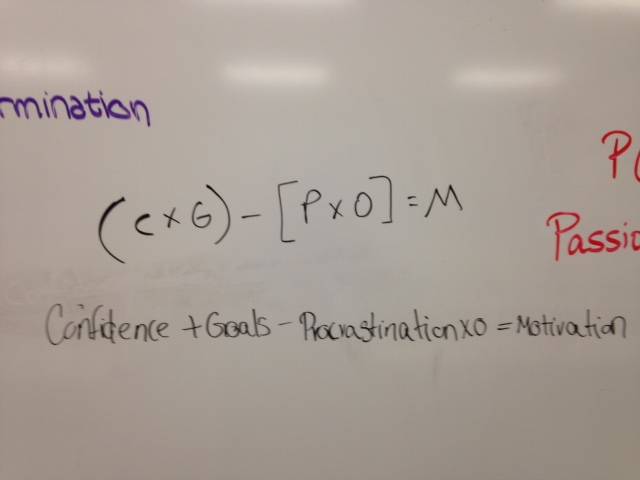 rmination
P
(C x G) - [P x O] = M
Passio
Confidence + Goals - Procrastination x O = Motivation